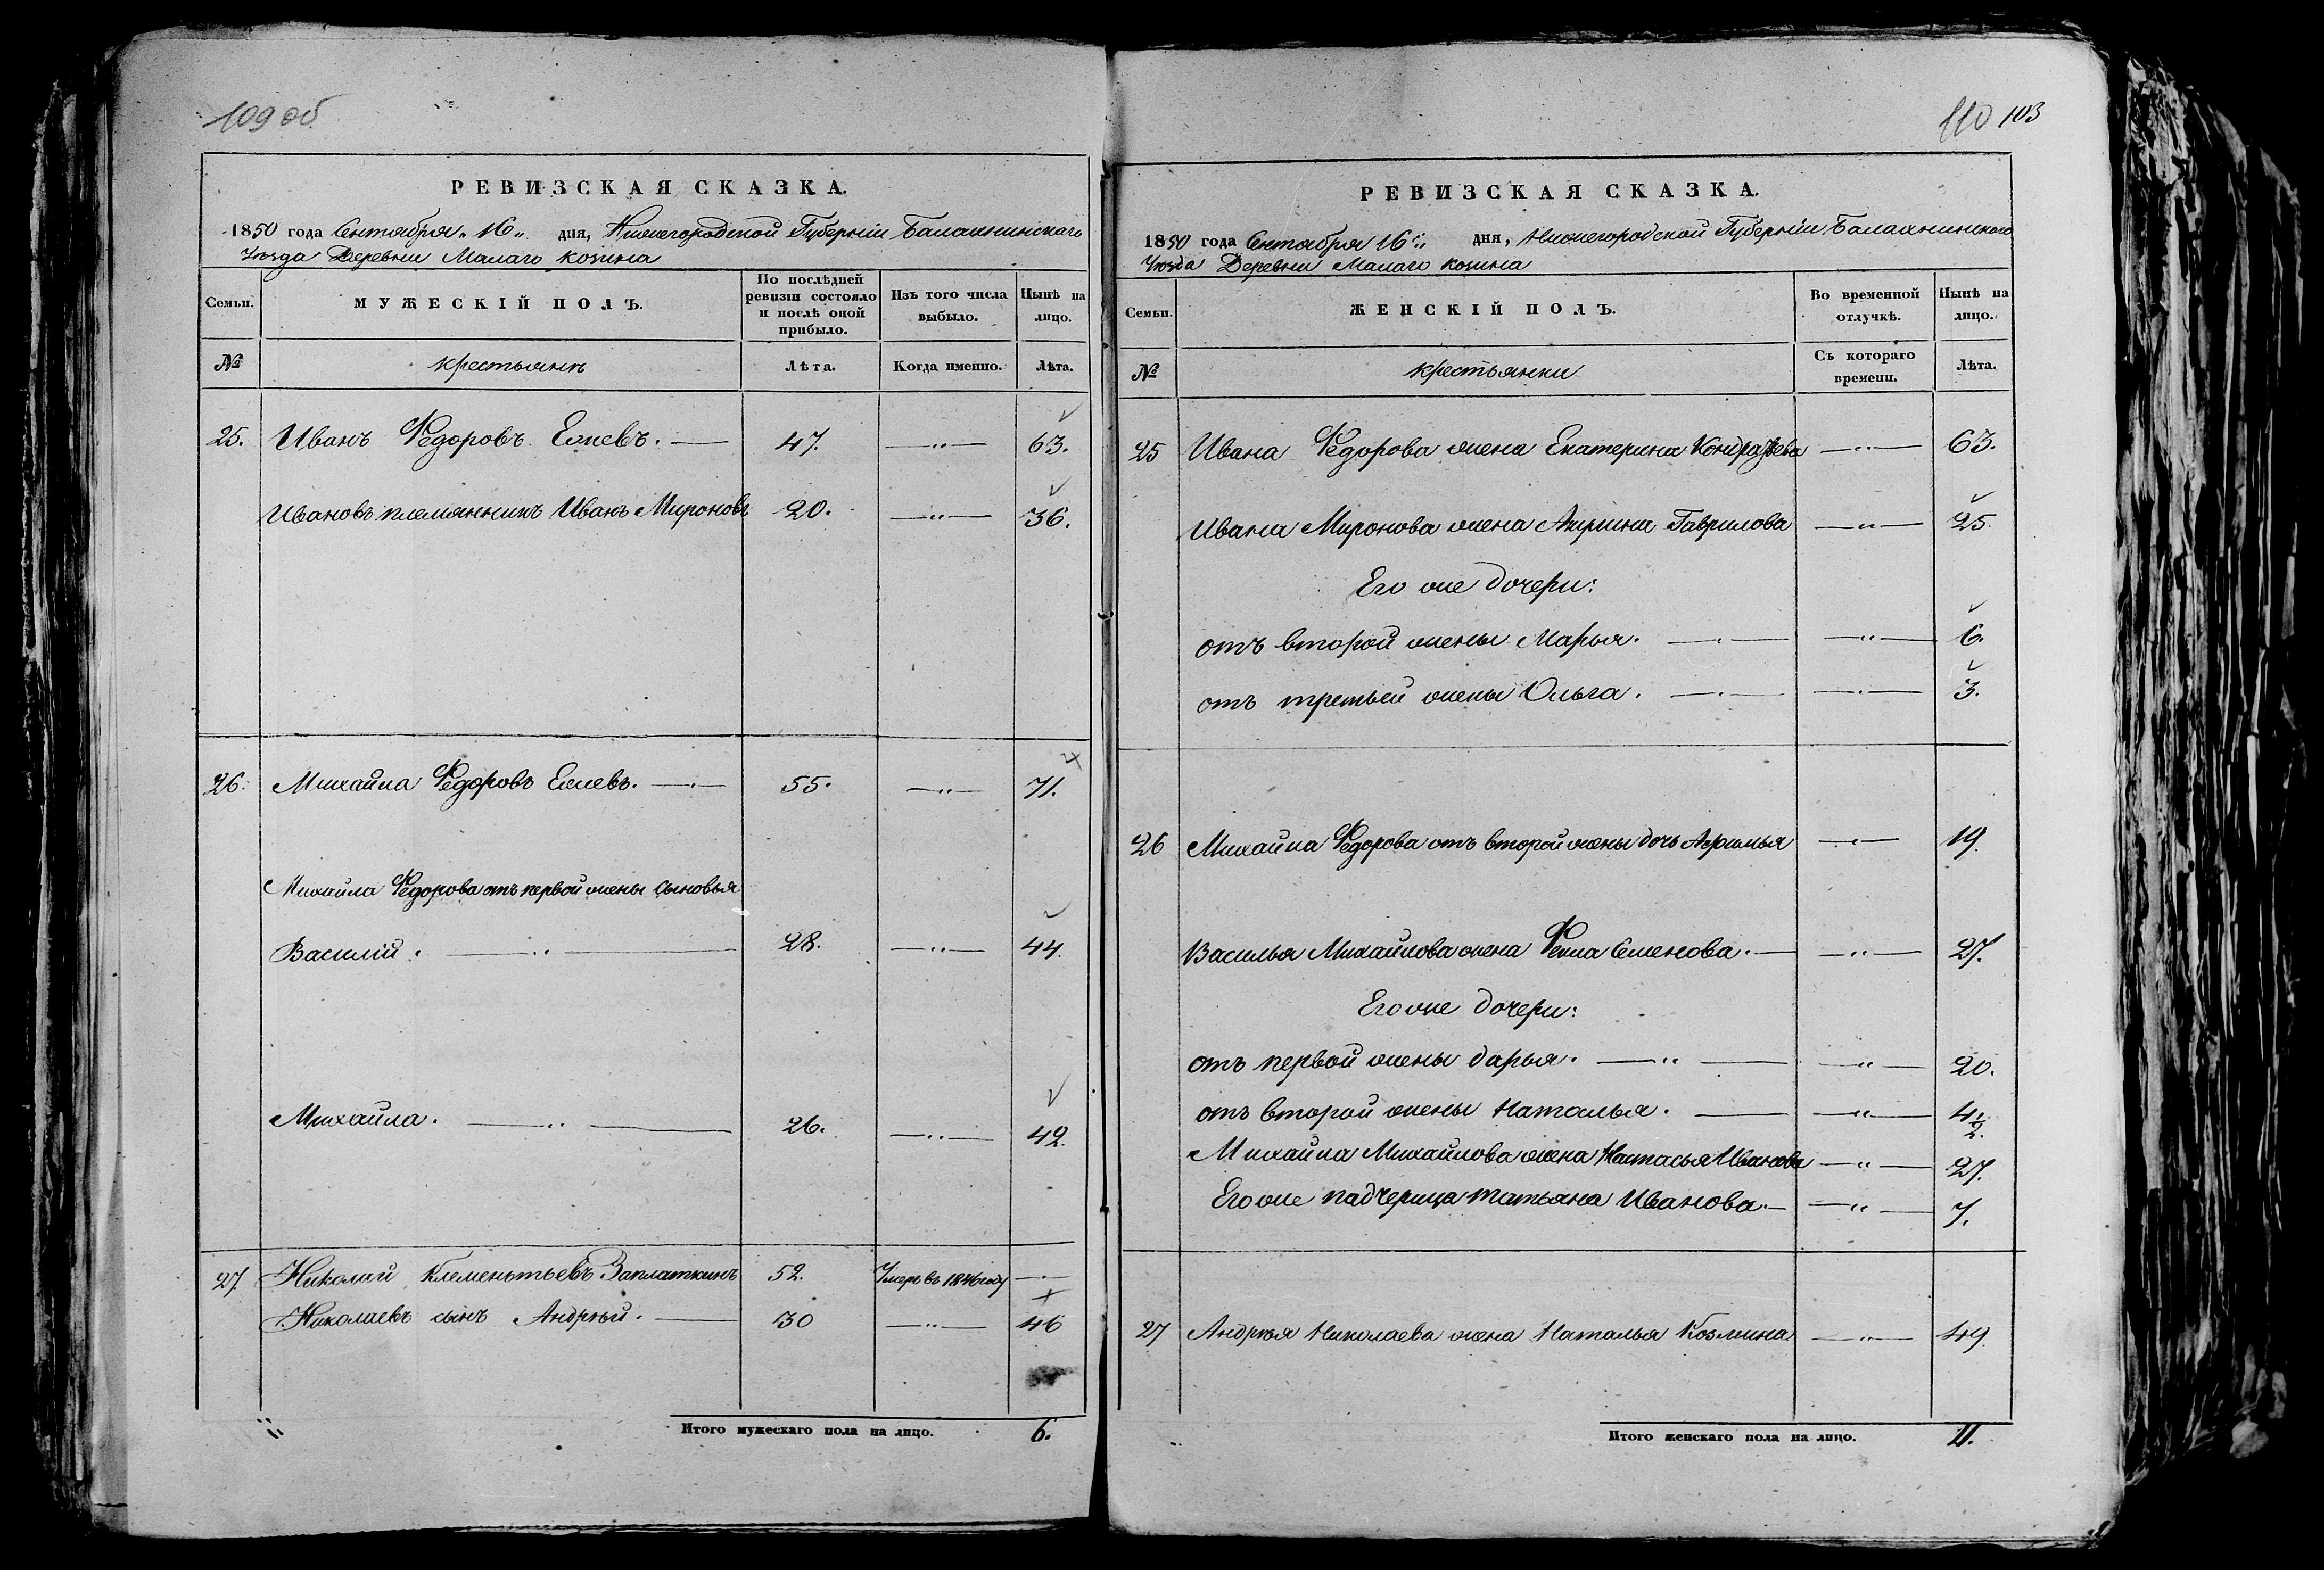 109 об
РЕВИЗСКАЯ СКАЗКА.
1850 года Сентября „16„ дня, Нижегородской Губерніи Балахнинскаго
Уѣзда Деревни Малаго козина
Семьи. МУЖЕСКІЙ ПОЛЪ. По послѣдней ревизіи состояло и послѣ оной прибыло. Изъ того числа выбыло. Нынѣ на лицо.
№ крестьянъ Лѣта. Когда именно. Лѣта.
25. Иванъ Ѳедоровъ Ежевъ. — 47. —„— 63.
Ивановъ племянникъ Иванъ Мироновъ 20. —„— 36.
26. Михайла Ѳедоровъ Ежевъ. — 55. —„— 71.
Михайла Ѳедорова отъ первой жены сыновья
Василій. —„— 28. —„— 44.
Михайла. —„— 26. —„— 42.
27. Николай Клеменьтьевъ Заплаткинъ 52. Умеръ въ 1846 году —
Николаевъ сынъ Андрѣй. — 30 —„— 46
Итого мужескаго пола на лицо. 6.
110 103
РЕВИЗСКАЯ СКАЗКА.
1850 года Сентября 16„ дня, Нижегородской Губерніи Балахнинскаго
Уѣзда Деревни Малаго козина
Семьи. ЖЕНСКІЙ ПОЛЪ. Во временной отлучкѣ. Нынѣ на лицо.
№ крестьянки Съ котораго времени. Лѣта.
25 Ивана Ѳедорова жена Екатерина Кондратьева —„— 63.
Ивана Миронова жена Гаврилова —„— 25.
Его же дочери:
отъ второй жены Марья. — —„— 6.
отъ третьей жены Ольга. — —„— 3.
26 Михайла Ѳедорова отъ второй жены дочь Афимья —„— 19.
Василья Михайлова жена Ѳекла Семенова. — —„— 27.
Его же дочери:
отъ первой жены дарья. —„— —„— 20.
отъ второй жены Наталья. — —„— 4 1/2.
Михайла Михайлова жена Настасья Иванова —„— 27.
Его же падчерица татьяна Иванова. — —„— 7.
27 Андрѣя Николаева жена Наталья Козмина —„— 49.
Итого женскаго пола на лицо. 11.